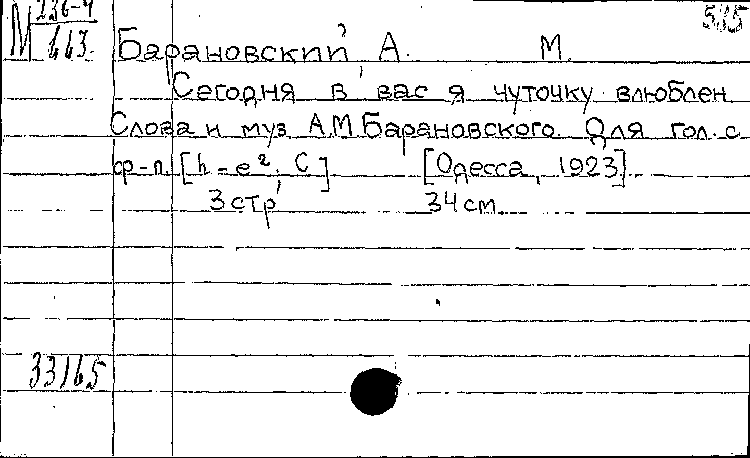 М 236-4
163
535
Барановский А. М.
Сегодня в вас я чуточку влюблен
Слова и муз А.М.Барановского Для гол. с
ф-п. [h - e². С] [Одесса, 1923].
3 стр 34 см.
33165